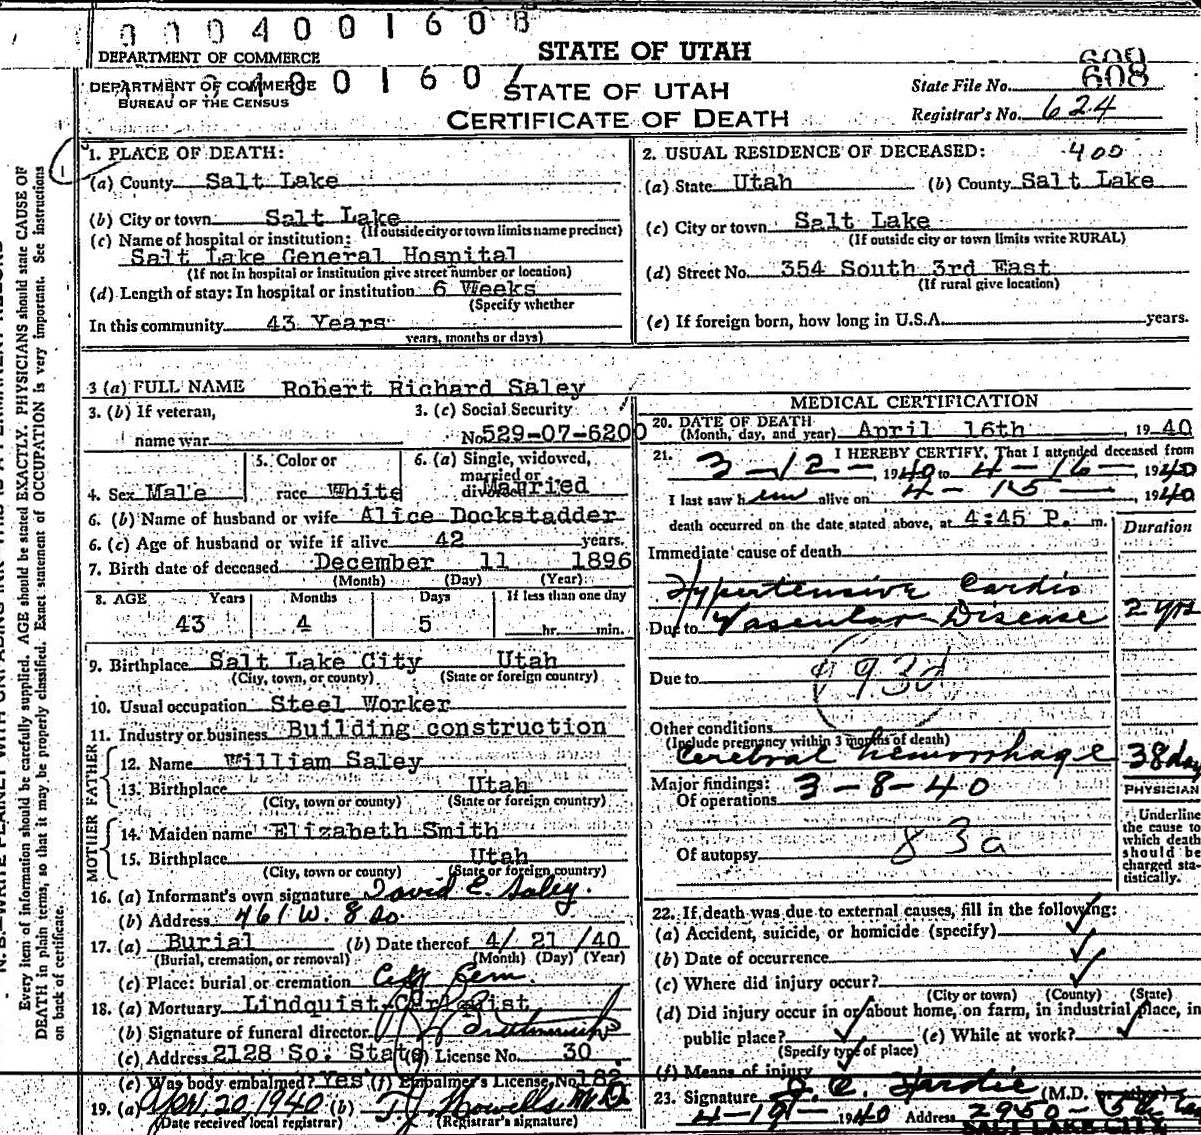 0004001608
DEPARTMENT OF COMMERCE STATE OF UTAH 609
DEPARTMENT OF COMMERCE 04001607 STATE OF UTAH State File No. 608
BUREAU OF THE CENSUS
CERTIFICATE OF DEATH Registrar's No. 624
1. PLACE OF DEATH:
(a) County Salt Lake
(b) City or town Salt Lake
(If outside city or town limits name precinct)
(c) Name of hospital or institution:
Salt Lake General Hospital
(If not in hospital or institution give street number or location)
(d) Length of stay: In hospital or institution 6 Weeks
(Specify whether
In this community 43 Years
years, months or days)
2. USUAL RESIDENCE OF DECEASED: 400
(a) State Utah (b) County Salt Lake
(c) City or town Salt Lake
(If outside city or town limits write RURAL)
(d) Street No. 354 South 3rd East
(If rural give location)
(e) If foreign born, how long in U.S.A. years.
3 (a) FULL NAME Robert Richard Saley
3. (b) If veteran, 3. (c) Social Security
name war No. 529-07-6200
4. Sex Male 5. Color or race White 6. (a) Single, widowed, married or divorced Married
6. (b) Name of husband or wife Alice Dockstadder
6. (c) Age of husband or wife if alive 42 years.
7. Birth date of deceased December 11 1896
(Month) (Day) (Year)
8. AGE Years Months Days If less than one day
43 4 5 hr. min.
9. Birthplace Salt Lake City Utah
(City, town, or county) (State or foreign country)
10. Usual occupation Steel Worker
11. Industry or business Building construction
FATHER
12. Name William Saley
13. Birthplace Utah
(City, town or county) (State or foreign country)
MOTHER
14. Maiden name Elizabeth Smith
15. Birthplace Utah
(City, town or county) (State or foreign country)
16. (a) Informant's own signature David E. Saley.
(b) Address 461 W. 8 So.
17. (a) Burial (b) Date thereof 4/ 21 /40
(Burial, cremation, or removal) (Month) (Day) (Year)
(c) Place: burial or cremation City Cem.
18. (a) Mortuary Lindquist
(b) Signature of funeral director
(c) Address 2128 So. State (d) License No. 30
(e) Was body embalmed? Yes (f) Embalmer's License No. 182
19. (a) Apr. 20, 1940 (b) T. J. Howells M.D.
(Date received local registrar) (Registrar's signature)
MEDICAL CERTIFICATION
20. DATE OF DEATH
(Month, day, and year) April 16th, 1940
21. I HEREBY CERTIFY, That I attended deceased from
3-12-, 1940 to 4-16-, 1940
I last saw him alive on 4-15, 1940
death occurred on the date stated above, at 4:45 P. m. Duration
Immediate cause of death
Hypertensive Cardio
Due to Vascular Disease 2 yrs
Due to 93d
Other conditions
(Include pregnancy within 3 months of death)
Cerebral hemorrhage 38 day
Major findings:
Of operations 3-8-40
Of autopsy 83a
PHYSICIAN
Underline
the cause to
which death
should be
charged sta-
tistically.
22. If death was due to external causes, fill in the following:
(a) Accident, suicide, or homicide (specify)
(b) Date of occurrence
(c) Where did injury occur?
(City or town) (County) (State)
(d) Did injury occur in or about home, on farm, in industrial place, in
public place? (e) While at work?
(Specify type of place)
(f) Means of injury
23. Signature Hardie (M.D.
4-19-1940 Address 2950-
SALT LAKE CITY
Every item of information should be carefully supplied. AGE should be stated EXACTLY. PHYSICIANS should state CAUSE OF
DEATH in plain terms, so that it may be properly classified. Exact statement of OCCUPATION is very important. See instructions
on back of certificate.